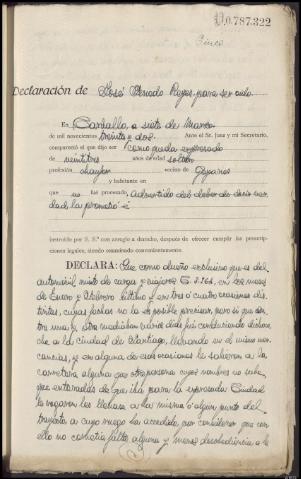 0.787.322
Cinco
Declaración de José Penado Reyes, para ser oido
En Carballo, a siete de Marzo
de mil novecientos treinta y dos. Ante el Sr. Juez y mi Secretario,
compareció el que dijo ser como queda expresado
de veintitres años de edad soltero
profesión chaufer vecino de Goyanes
y habitante en
que no fué procesado. Advertido del deber de decir ver-
dad la prometió e
instruído por S. S.ª con arreglo a derecho, después de ofrecer cumplir las prescrip-
ciones legales, siendo examinado convenientemente.
DECLARA: Que como dueño exclusivo que es del
automóvil mixto de carga y viajeros C. 3.261, en los meses
de Enero y Febrero último y en tres ó cuatro ocasiones dis-
tintas, cuyas fechas no le es posible precisar, pero si que en-
tre una y otra mediaban varios días fué conduciendo dicho co-
che a la ciudad de Santiago, llevando en el mismo mer-
cancías, y en alguna de esas ocasiones le salieron a la
carretera alguna que otra persona cuyos nombres no sabe,
que enteradas de que iba para la expresada Ciudad
le rogaron las llevara a la misma ó algun punto del
trayecto a cuyo ruego ha accedido por considerar que con
ello no cometía falta alguna y menos desobediencia a la